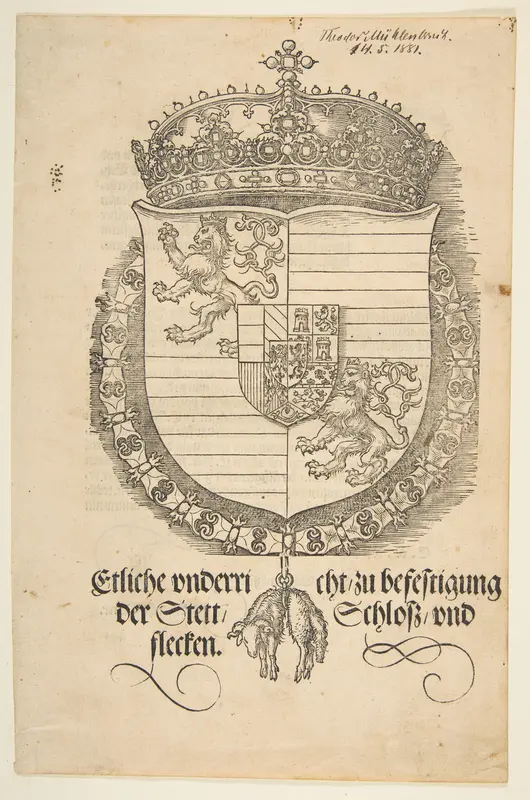 Theodor Mühlenbruch.
14. 5. 1881.
Etliche vnderricht/ zu befestigung
der Stett/ Schloß/ vnd
flecken.